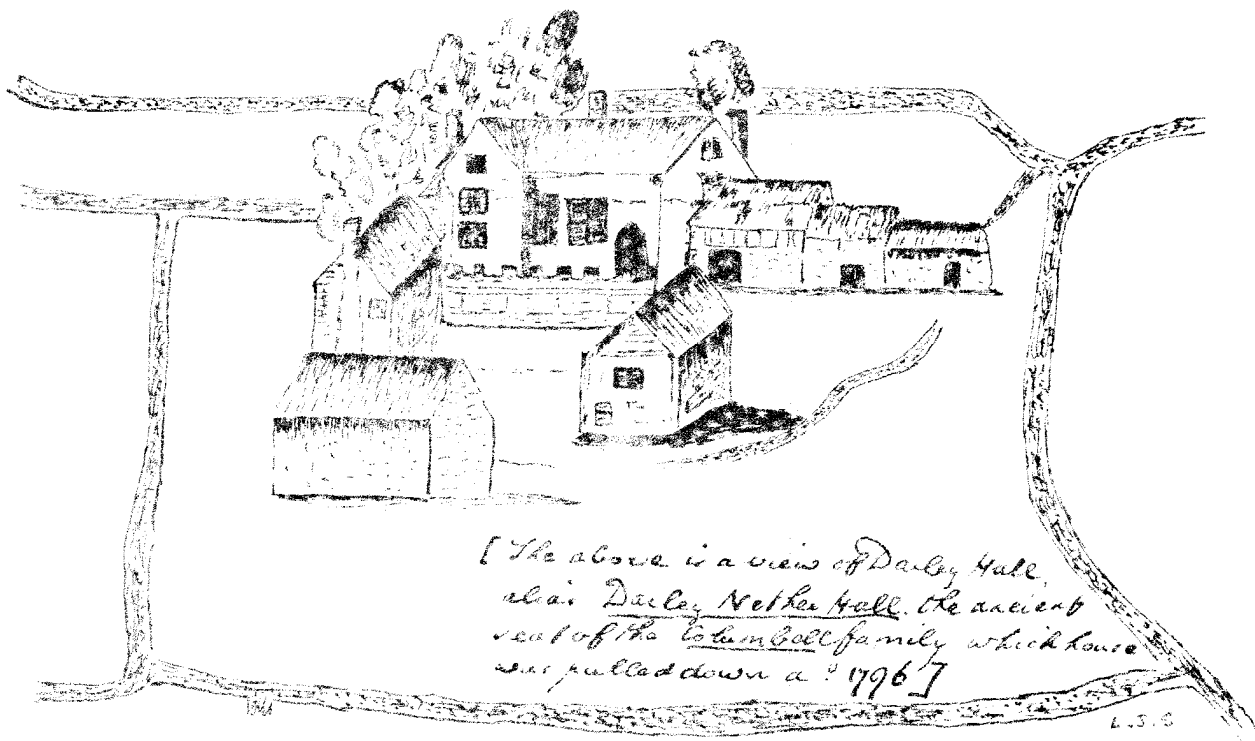 [ The above is a view of Darley Hall,
alias Darley Nether Hall. the ancient
seat of the Columbell family which house
was pulled down aº 1796 ]
L.S.S